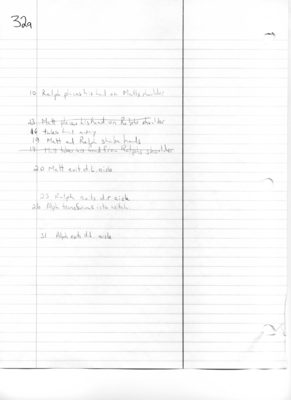 32a
10 Ralph places his hand on Matts shoulder
13 Matt places his hand on Ralphs shoulder
16 takes hand away
19 Matt and Ralph shake hands
19 takes his hand from Ralphs shoulder
20 Matt exit d.l. aisle
23 Ralph exits d.r. aisle
26 Alph transforms into witch
31 Alph exits d.l. aisle